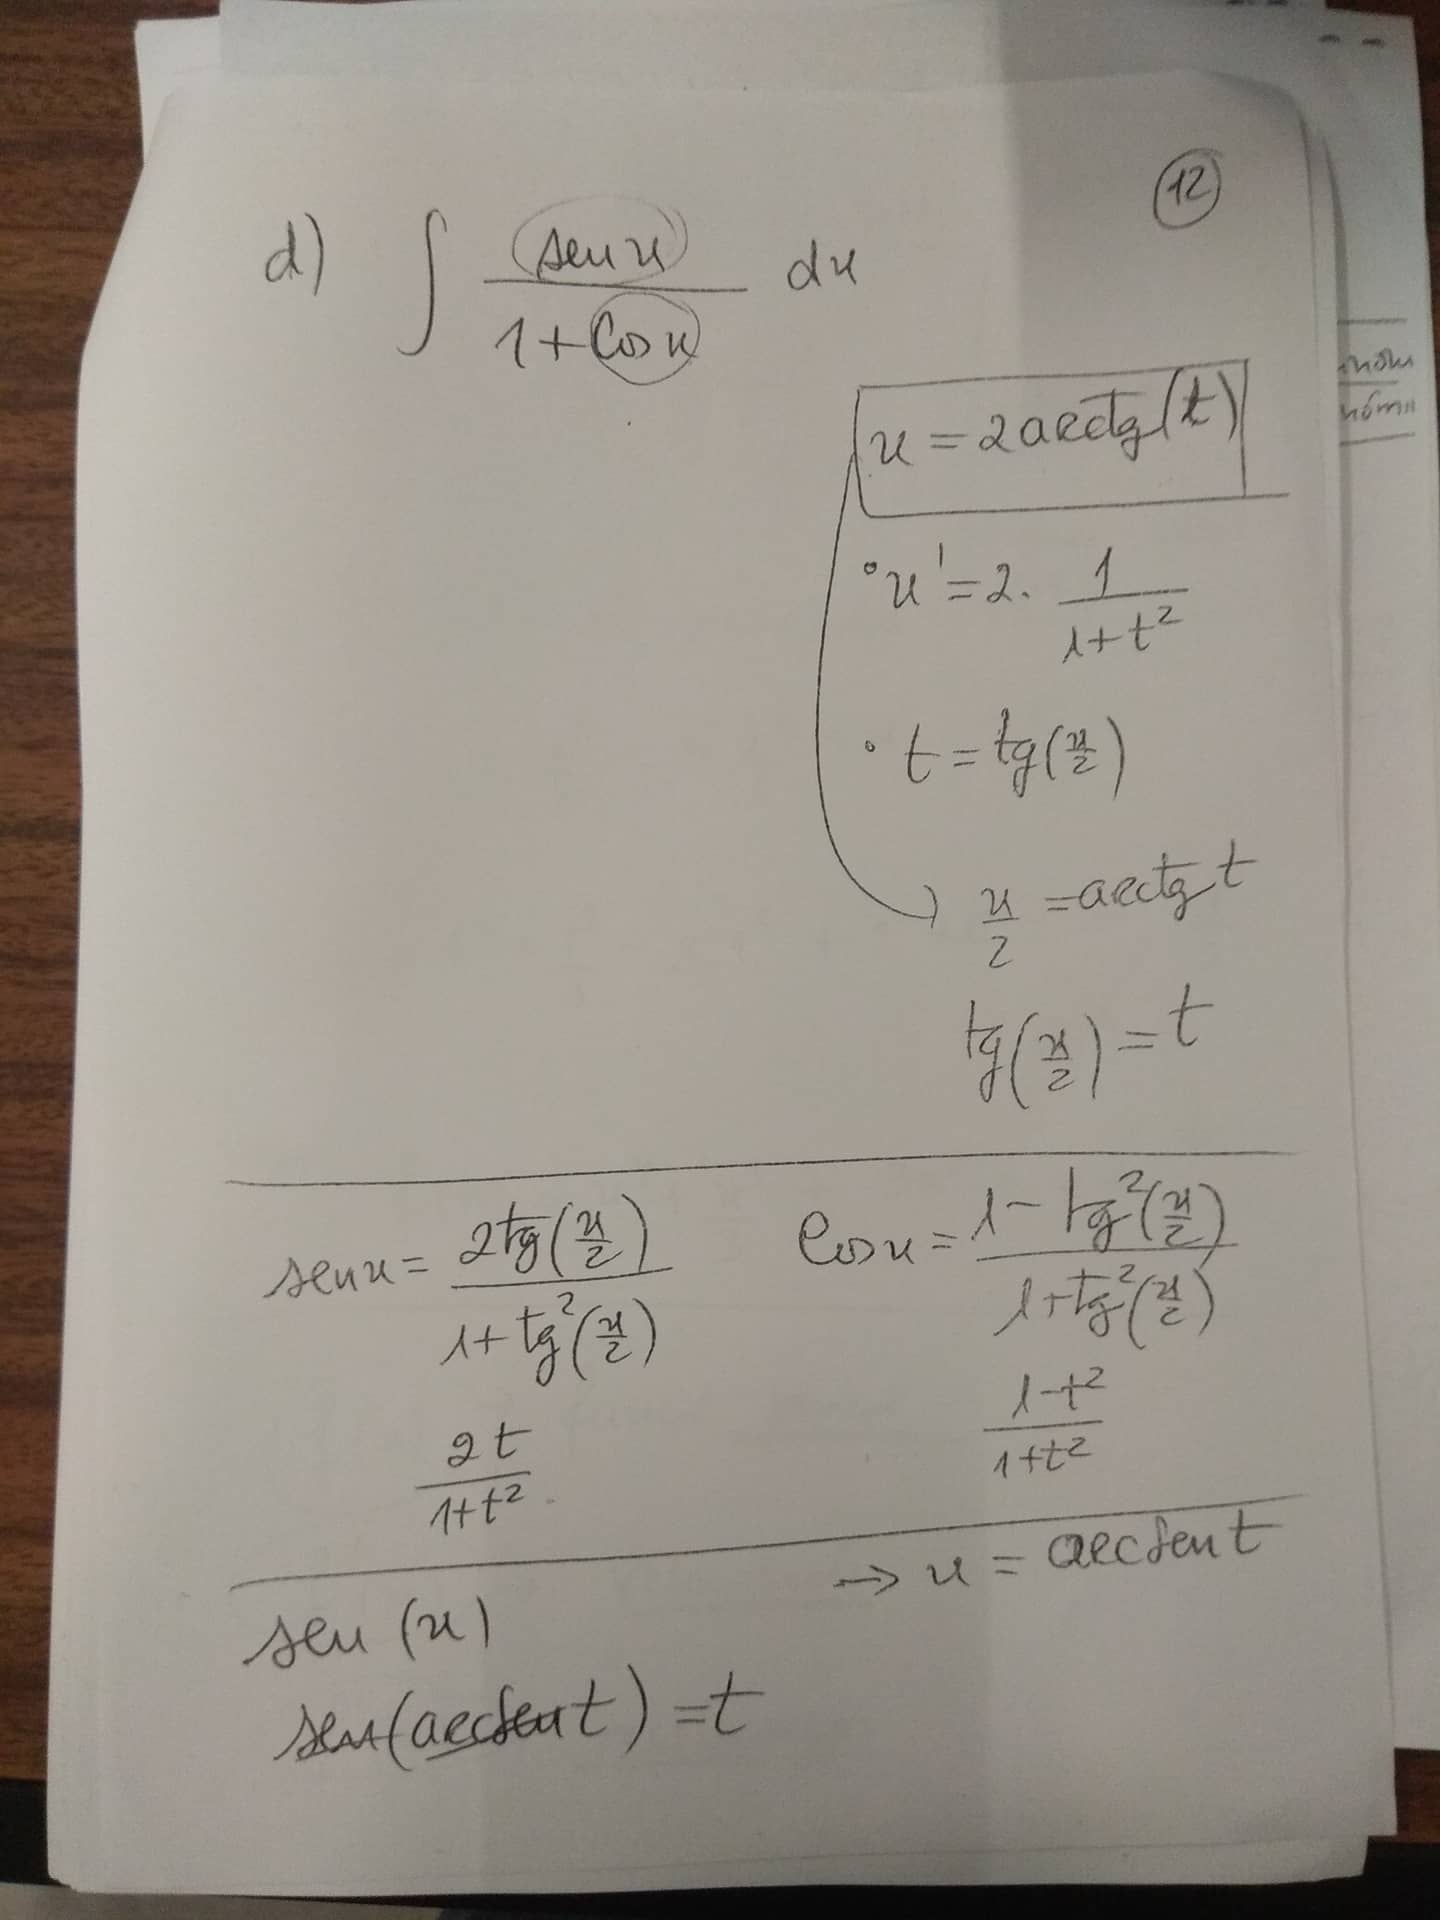 12
d) ∫ sen x / 1 + cos x dx
x = 2 arctg(t)
• x' = 2. 1 / 1+t²
• t = tg(x/2)
x/2 = arctg t
tg(x/2) = t
sen x = 2tg(x/2) / 1+tg²(x/2)
cos x = 1-tg²(x/2) / 1+tg²(x/2)
2t / 1+t²
1-t² / 1+t²
→ x = arcsen t
sen (x)
sen(arcsen t) = t